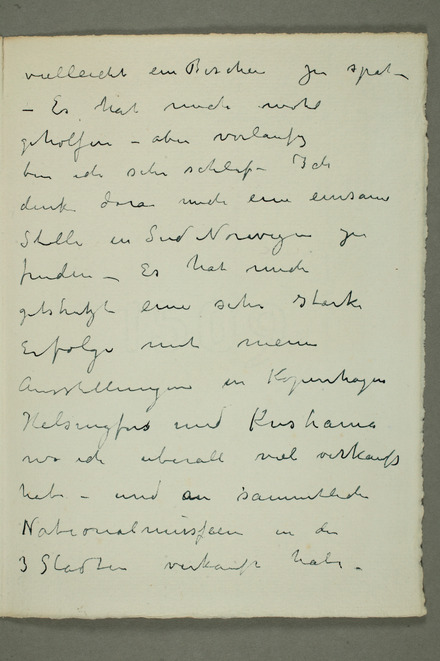 vielleicht ein Bischen zu spät –
– Es hat mich wohl
geholfen – aber vorlaufig
bin ich sehr schlaf – Ich
denke daran mich eine einsame
Stelle in Sud Norwegen zu
finden – Es hat mich
gestutzt eine sehr starke
Erfolge mit meine
Ausstellungen in Kopenhagen
Helsingfors und Kristiania
wo ich uberall viel verkauft
habe – und an sammtliche
Nationalmusseen in die
3 Stadten verkauft habe –